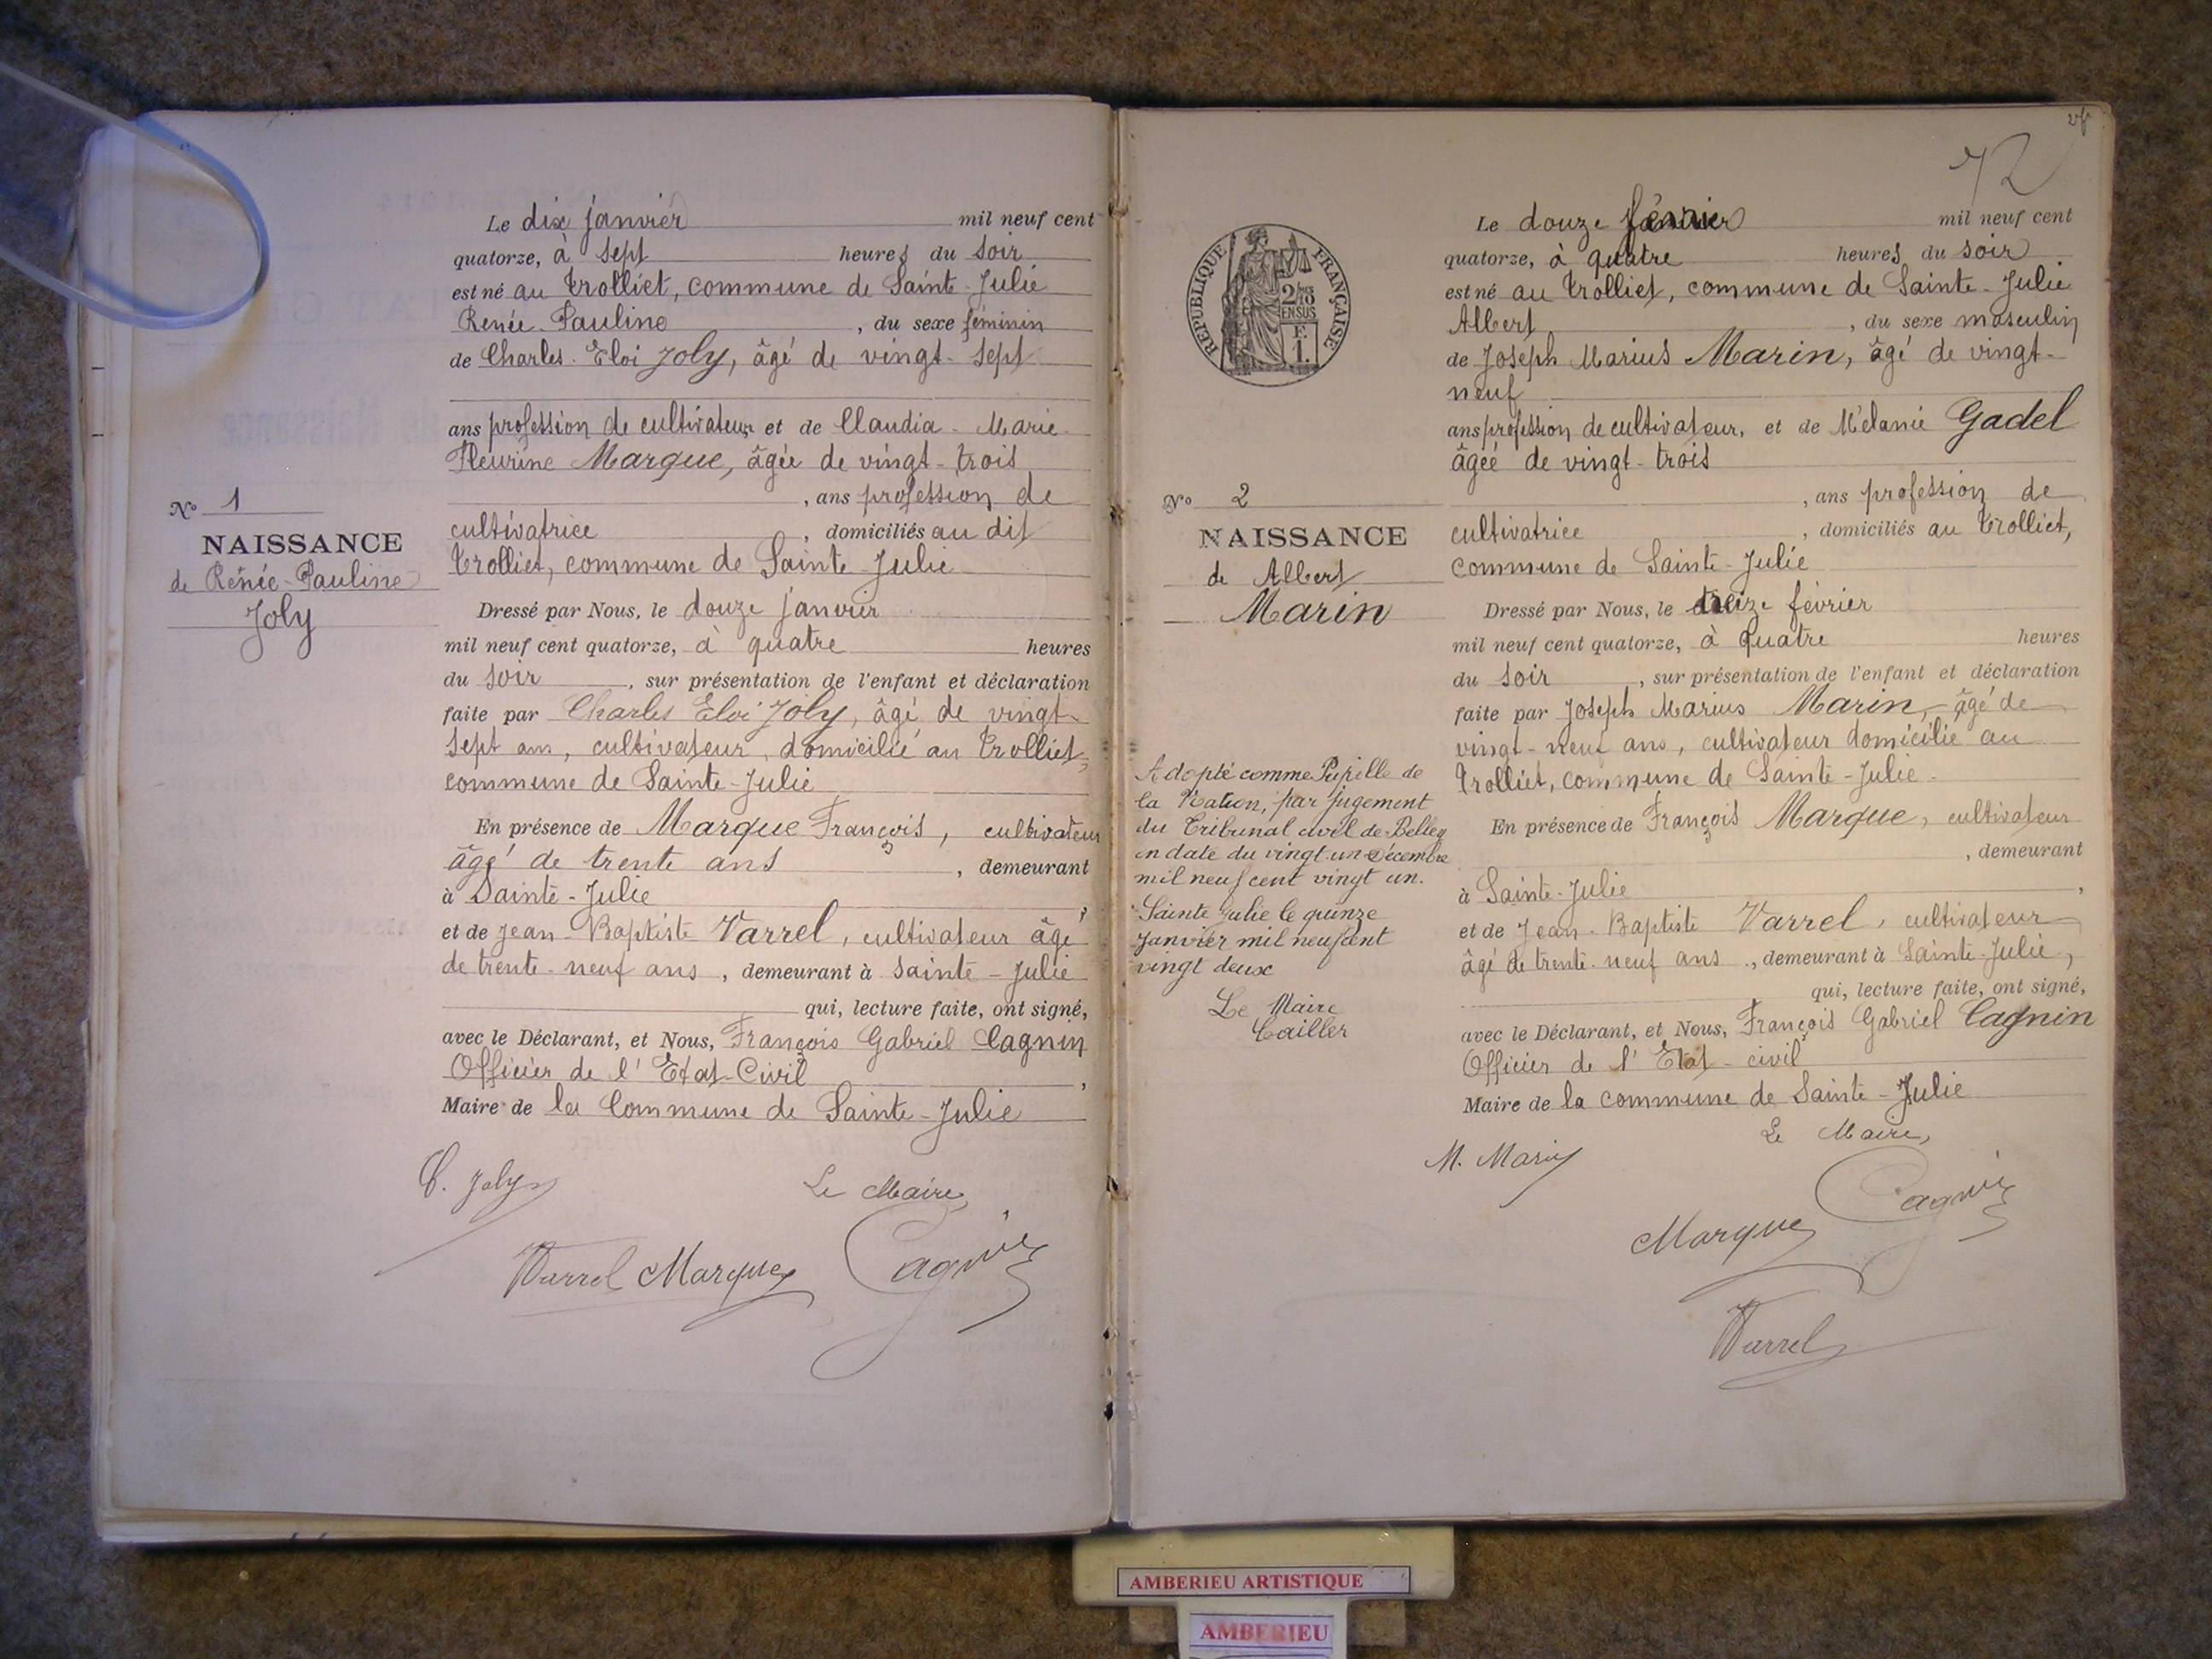 Le dix janvier mil neuf cent
quatorze, à sept heures du soir
est né au Trolliet, commune de Sainte-Julie
Renée-Pauline, du sexe féminin
de Charles-Eloi Joly, âgé de vingt-sept
ans profession de cultivateur et de Claudia-Marie-
Fleurine Marque, âgée de vingt-trois
, ans profession de
cultivatrice, domiciliés au dit
Trolliet, commune de Sainte-Julie
No 1
NAISSANCE
de Renée-Pauline
Joly
Dressé par Nous, le douze janvier
mil neuf cent quatorze, à quatre heures
du soir, sur présentation de l'enfant et déclaration
faite par Charles Eloi Joly, âgé de vingt-
sept ans, cultivateur, domicilié au Trolliet,
commune de Sainte-Julie
En présence de Marque François, cultivateur
âgé de trente ans, demeurant
à Sainte-Julie,
et de Jean-Baptiste Varrel, cultivateur âgé
de trente-neuf ans, demeurant à Sainte-Julie
qui, lecture faite, ont signé,
avec le Déclarant, et Nous, François Gabriel Cagnin
Officier de l'Etat-Civil,
Maire de la Commune de Sainte-Julie
C. Joly
Le Maire
Varrel Marque Cagnin
72
Le douze février mil neuf cent
quatorze, à quatre heures du soir
est né au Trolliet, commune de Sainte-Julie
Albert, du sexe masculin
de Joseph Marius Marin, âgé de vingt-
neuf
ans profession de cultivateur, et de Mélanie Gadel
âgée de vingt-trois
, ans profession de
cultivatrice, domiciliés au Trolliet,
commune de Sainte-Julie
RÉPUBLIQUE FRANÇAISE
2/10
EN SUS
F.
1.
No 2
NAISSANCE
de Albert
Marin
Dressé par Nous, le treize février
mil neuf cent quatorze, à quatre heures
du soir, sur présentation de l'enfant et déclaration
faite par Joseph Marius Marin, âgé de
vingt-neuf ans, cultivateur domicilié au
Trolliet, commune de Sainte-Julie.
En présence de François Marque, cultivateur
, demeurant
à Sainte-Julie,
et de Jean-Baptiste Varrel, cultivateur
âgé de trente-neuf ans, demeurant à Sainte-Julie,
qui, lecture faite, ont signé,
avec le Déclarant, et Nous, François Gabriel Cagnin
Officier de l'Etat-civil
Maire de la commune de Sainte-Julie
Le Maire,
M. Marin
Cagnin
Marque
Varrel
Adopté comme Pupille de
la Nation, par jugement
du Tribunal civil de Belley
en date du vingt-un Décembre
mil neuf cent vingt un.
Sainte Julie le quinze
Janvier mil neuf cent
vingt deux
Le Maire
Cailler
AMBERIEU ARTISTIQUE
AMBERIEU